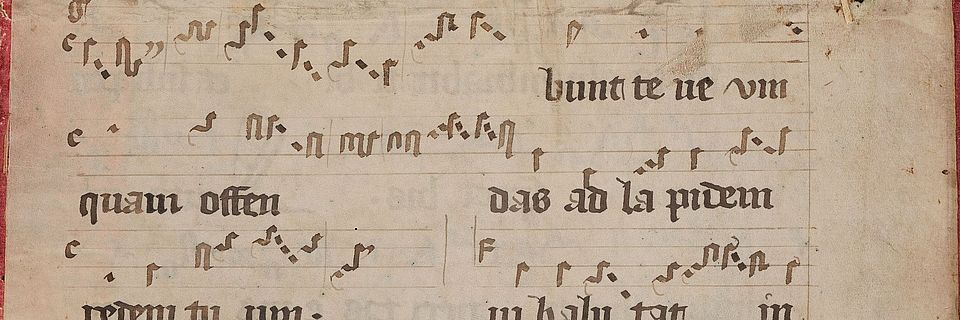 bunt te ne vm
quam offen das ad la pidem
pedem tu um. in habi tat in